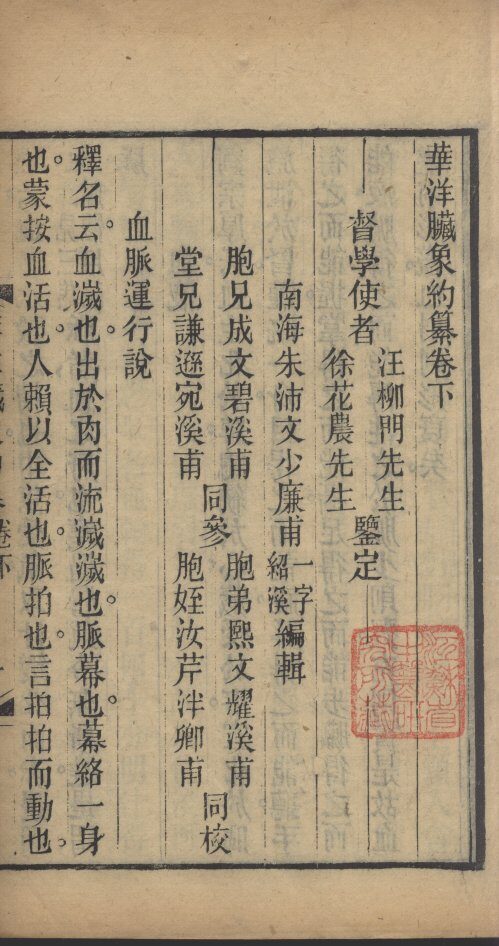 華洋臟象約纂卷下
督學使者
汪柳門先生
徐花農先生
鑒定
南海朱沛文少廉甫
一字
紹溪
編輯
胞兄成文碧溪甫
堂兄謙遜宛溪甫
同參
胞弟熙文耀溪甫
胞姪汝芹泮卿甫
同校
血脈運行說
釋名云。血濊也。出於肉而流濊濊也。脈幕也。幕絡一身
也。蒙按血活也。人賴以全活也。脈拍也。言拍拍而動也。
卷下